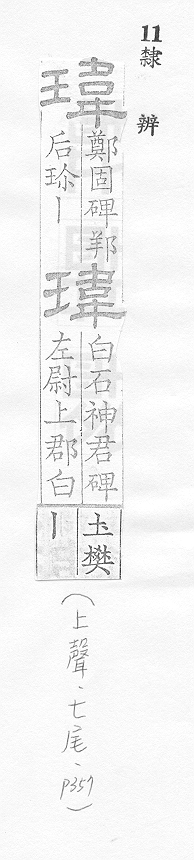 11隸辨
瑋
鄭固碑邦
后珎丨
瑋
白石神君碑
左尉上郡白
圡樊
丨
(上聲·七尾·P357)